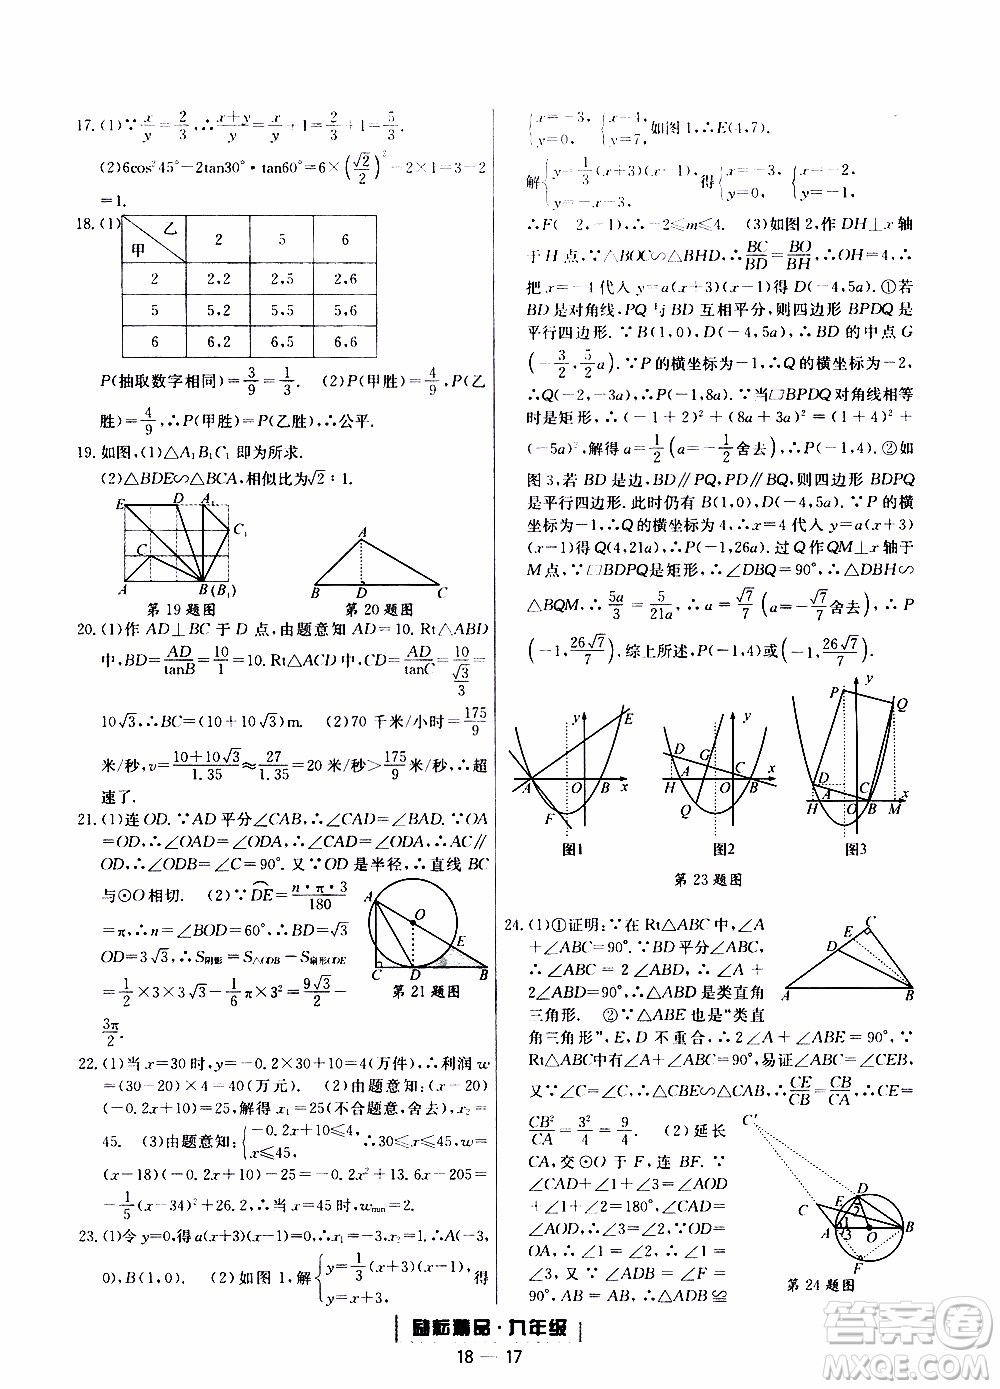 17. (1)∵x/y=2/3,∴(x+y)/y=x/y+1=2/3+1=5/3.
(2)6cos²45°-2tan30°·tan60°=6×(√2/2)²-2×1=3-2
=1.
18. (1)
乙
甲
2 5 6
2 2,2 2,5 2,6
5 5,2 5,5 5,6
6 6,2 6,5 6,6
P(抽取数字相同)=3/9=1/3. (2)P(甲胜)=4/9,P(乙
胜)=4/9,∴P(甲胜)=P(乙胜),∴公平.
19. 如图,(1)△A₁B₁C₁ 即为所求.
(2)△BDE∽△BCA,相似比为√2∶1.
E D A₁ C C₁ A B(B₁)
第19题图
A B D C
第20题图
20. (1)作 AD⊥BC 于 D 点,由题意知 AD=10. Rt△ABD
中,BD=AD/tanB=10/1=10. Rt△ACD 中,CD=AD/tanC=10/(√3/3)=
10√3,∴BC=(10+10√3)m. (2)70 千米/小时=175/9
米/秒,v=(10+10√3)/1.35≈27/1.35=20 米/秒>175/9米/秒,∴超
速了.
21. (1)连 OD. ∵AD 平分∠CAB,∴∠CAD=∠DAB. ∵OA
=OD,∴∠OAD=∠ODA,∴∠CAD=∠ODA,∴AC∥
OD,∴∠ODB=∠C=90°. 又∵OD 是半径,∴直线 BC
与⊙O 相切. (2)∵DE=n·π·3/180
=π,∴n=∠BOD=60°,∴BD=√3
OD=3√3,∴S阴影=S△ODB-S扇形ODE
=1/2×3×3√3-1/6×π×3²=9/2√3-
3π/2.
A O E C D B
第21题图
22. (1)当 x=30 时,y=-0.2×30+10=4(万件),∴利润 w
=(30-20)×4=40(万元). (2)由题意知:(x-20)
(-0.2x+10)=25,解得 x₁=25(不合题意,舍去),x₂=
45. (3)由题意知:{-0.2x+10≤4, x≤45, ∴30≤x≤45,w=
(x-18)(-0.2x+10)-25=-0.2x²+13.6x-205=
-1/5(x-34)²+26.2,∴当 x=45 时,wmin=2.
23. (1)令 y=0,得 a(x+3)(x-1)=0,∴x₁=-3,x₂=1,∴A(-3,
0),B(1,0). (2)如图 1,解{y=1/3(x+3)(x-1), y=x+3, 得
{x=-3, y=0, {x=4, y=7, 如图 1,∴E(4,7).
解{y=1/3(x+3)(x-1), y=-x-3, 得{x=-3, y=0, {x=-2, y=-1,
∴F(-2,-1),∴-2≤m≤4. (3)如图 2,作 DH⊥x 轴
于 H 点,∵△BOC∽△BHD,∴BC/BD=BO/BH,∴OH=4,∴
把 x=-4 代入 y=a(x+3)(x-1)得 D(-4,5a). ①若
BD 是对角线,PQ 与 BD 互相平分,则四边形 BPDQ 是
平行四边形. ∵B(1,0),D(-4,5a),∴BD 的中点 G
(-3/2,5/2a). ∵P 的横坐标为-1,∴Q 的横坐标为-2,
∴Q(-2,-3a),∴P(-1,8a). ∵当□BPDQ 对角线相等
时是矩形,∴(-1+2)²+(8a+3a)²=(1+4)²+
(-5a)²,解得 a=1/2(a=-1/2舍去),∴P(-1,4). ②如
图 3,若 BD 是边,BD∥PQ,PD∥BQ,则四边形 BDPQ
是平行四边形. 此时仍有 B(1,0),D(-4,5a). ∵P 的横
坐标为-1,∴Q 的横坐标为 4,∴x=4 代入 y=a(x+3)
(x-1)得 Q(4,21a),∴P(-1,26a). 过 Q 作 QM⊥x 轴于
M 点,∵□BDPQ 是矩形,∴∠DBQ=90°,∴△BHD∽
△BQM,∴5a/3=5/21a,∴a=√7/7(a=-√7/7舍去),∴P
(-1,26√7/7),综上所述,P(-1,4)或(-1,26√7/7).
y E A O B x F
图1
y D G C x H A O B Q
图2
P y Q D C H A O B M x
图3
第23题图
24. (1)①证明:∵在 Rt△ABC 中,∠A
+∠ABC=90°,∵BD 平分∠ABC,
∴∠ABC=2∠ABD,∴∠A+
2∠ABD=90°,∴△ABD 是类直角
三角形. ②∵△ABE 也是“类直
角三角形”,E,D 不重合,∴2∠A+∠ABE=90°,∵
Rt△ABC 中,∠A+∠ABC=90°,易证∠A=∠CBE,
又∵∠C=∠C,∴△CBE∽△CAB,∴CE/CB=CB/CA,∴CE=
CB²/CA=3²/4=9/4. (2)延长
CA,交⊙O 于 F,连 BF. ∵
∠CAD+∠1+∠2=∠AOD
+∠1+∠2,∴∠CAD=
∠AOD,∴∠3=∠2. ∵OD=
OA,∴∠1=∠2,∴∠1=∠3.
又∵∠F=∠ADB,∴△ABF≌
C E D A B
C′ C E D A O B F 1 2 3
第24题图
励耘精品·九年级
18—17
答案圈
MXQE.COM